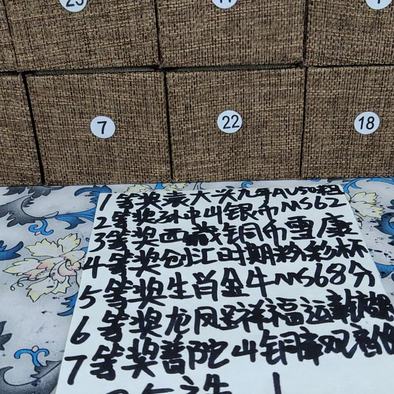 7
22
18
1等奖袁大头九年AU50粗
2等奖孙中山银币MS62
3等奖西藏铜币雪康
4等奖包江时期粉彩杯
5等奖生肖金牛MS68分
6等奖龙凤呈祥福运
7等奖普陀山铜章观音